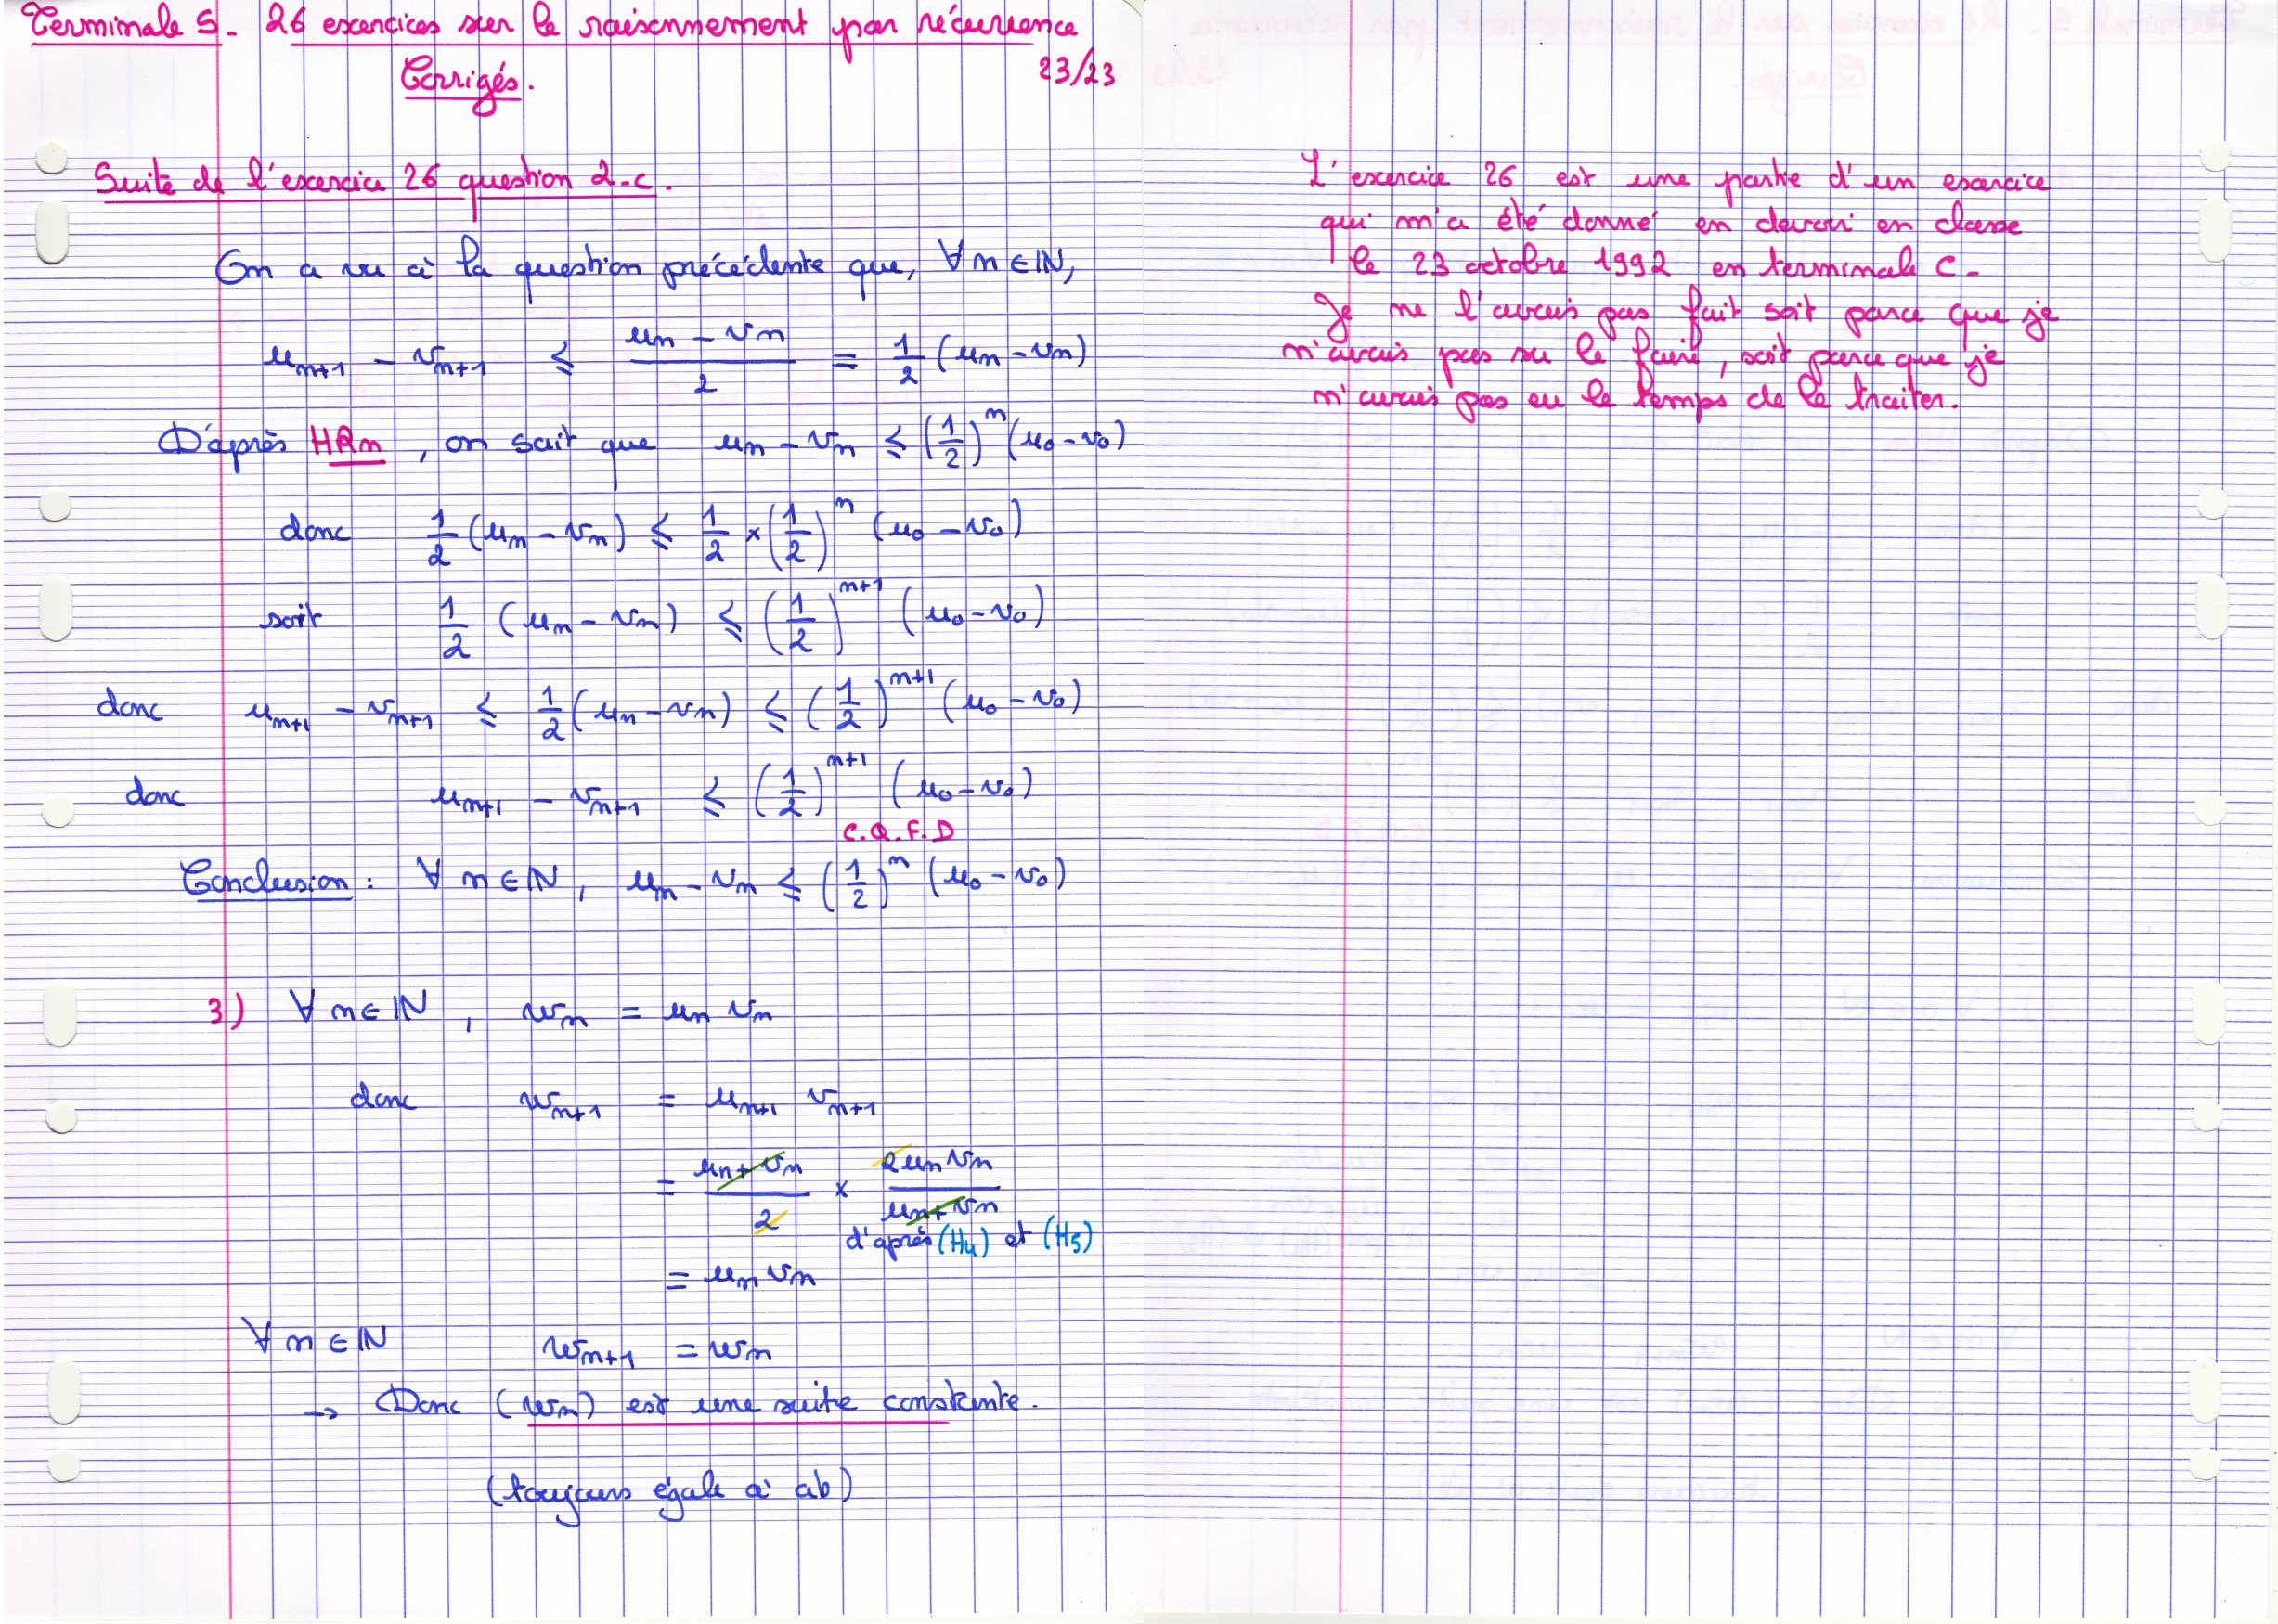 Terminale S. 26 exercices sur le raisonnement par récurrence
Corrigés.
23/23
Suite de l'exercice 26 question 2.c.
On a vu à la question précédente que, ∀ n ∈ ℕ,
u_{n+1} - v_{n+1} ≤ (u_n - v_n)/2 = 1/2 (u_n - v_n)
D'après HRn, on sait que u_n - v_n ≤ (1/2)^n (u_0 - v_0)
donc 1/2 (u_n - v_n) ≤ 1/2 × (1/2)^n (u_0 - v_0)
soit 1/2 (u_n - v_n) ≤ (1/2)^{n+1} (u_0 - v_0)
donc u_{n+1} - v_{n+1} ≤ 1/2 (u_n - v_n) ≤ (1/2)^{n+1} (u_0 - v_0)
donc u_{n+1} - v_{n+1} ≤ (1/2)^{n+1} (u_0 - v_0)
C.Q.F.D
Conclusion : ∀ n ∈ ℕ, u_n - v_n ≤ (1/2)^n (u_0 - v_0)
3) ∀ n ∈ ℕ, w_n = u_n v_n
donc w_{n+1} = u_{n+1} v_{n+1}
= (u_n + v_n)/2 × (2 u_n v_n)/(u_n + v_n)
d'après (H4) et (H5)
= u_n v_n
∀ n ∈ ℕ w_{n+1} = w_n
→ Donc (w_n) est une suite constante.
(toujours égale à ab)
L'exercice 26 est une partie d'un exercice
qui m'a été donné en devoir en classe
le 23 octobre 1992 en terminale C.
Je ne l'avais pas fait soit parce que je
n'avais pas su le faire, soit parce que je
n'avais pas eu le temps de le traiter.